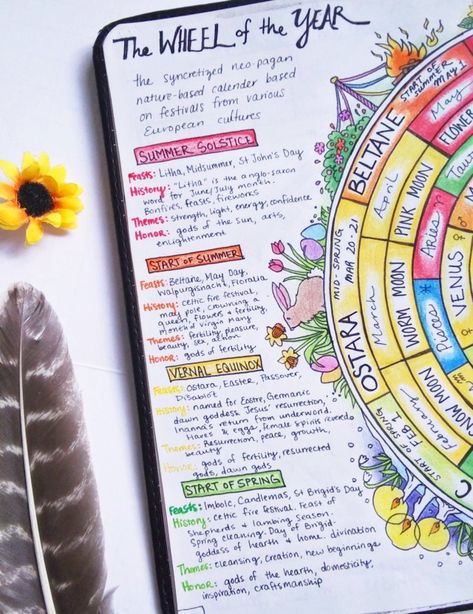 The WHEEL of the YEAR
the syncretized neo-pagan
nature-based calender based
on festivals from various
European cultures
SUMMER SOLSTICE
Feasts: Litha, Midsummer, St John's Day
History: "Litha" is the anglo-saxon
word for June/July month.
Bonfires, feasts, fireworks
Themes: strength, light, energy, confidence
Honor: gods of the sun, arts,
enlightenment
START OF SUMMER
Feasts: Beltane, May Day,
Walpurgisnacht, Floralia
History: Celtic fire festival,
may pole, crowning a
queen, flowers + fertility,
month of virgin mary
Themes: fertility, pleasure,
beauty, sex, action
Honor: gods of fertility
VERNAL EQUINOX
Feasts: Ostara, Easter, Passover,
History: named for Eostre, Germanic
dawn goddess. Jesus' resurrection,
Inanna's return from underworld.
Hares & eggs, female spirits revered
Themes: Resurrection, peace, growth,
beauty
Honor: gods of fertility, resurrected
gods, dawn gods
START OF SPRING
Feasts: Imbolc, Candlemas, St Brigid's Day
History: Celtic fire festival. Feast of
shepherds + lambing season.
Spring cleaning. Day of Brigid-
goddess of hearth + home. divination
Themes: cleansing, creation, new beginnings
Honor: gods of the hearth, domesticity,
inspiration, craftsmanship
BELTANE
START OF
SUMMER
MAY 1
May
FLOWER
April
PINK MOON
Aries
OSTARA
MID SPRING
MAR 20-21
March
WORM MOON
Pisces
VENUS
START OF SPRING
FEB 1
February
SNOW MOON